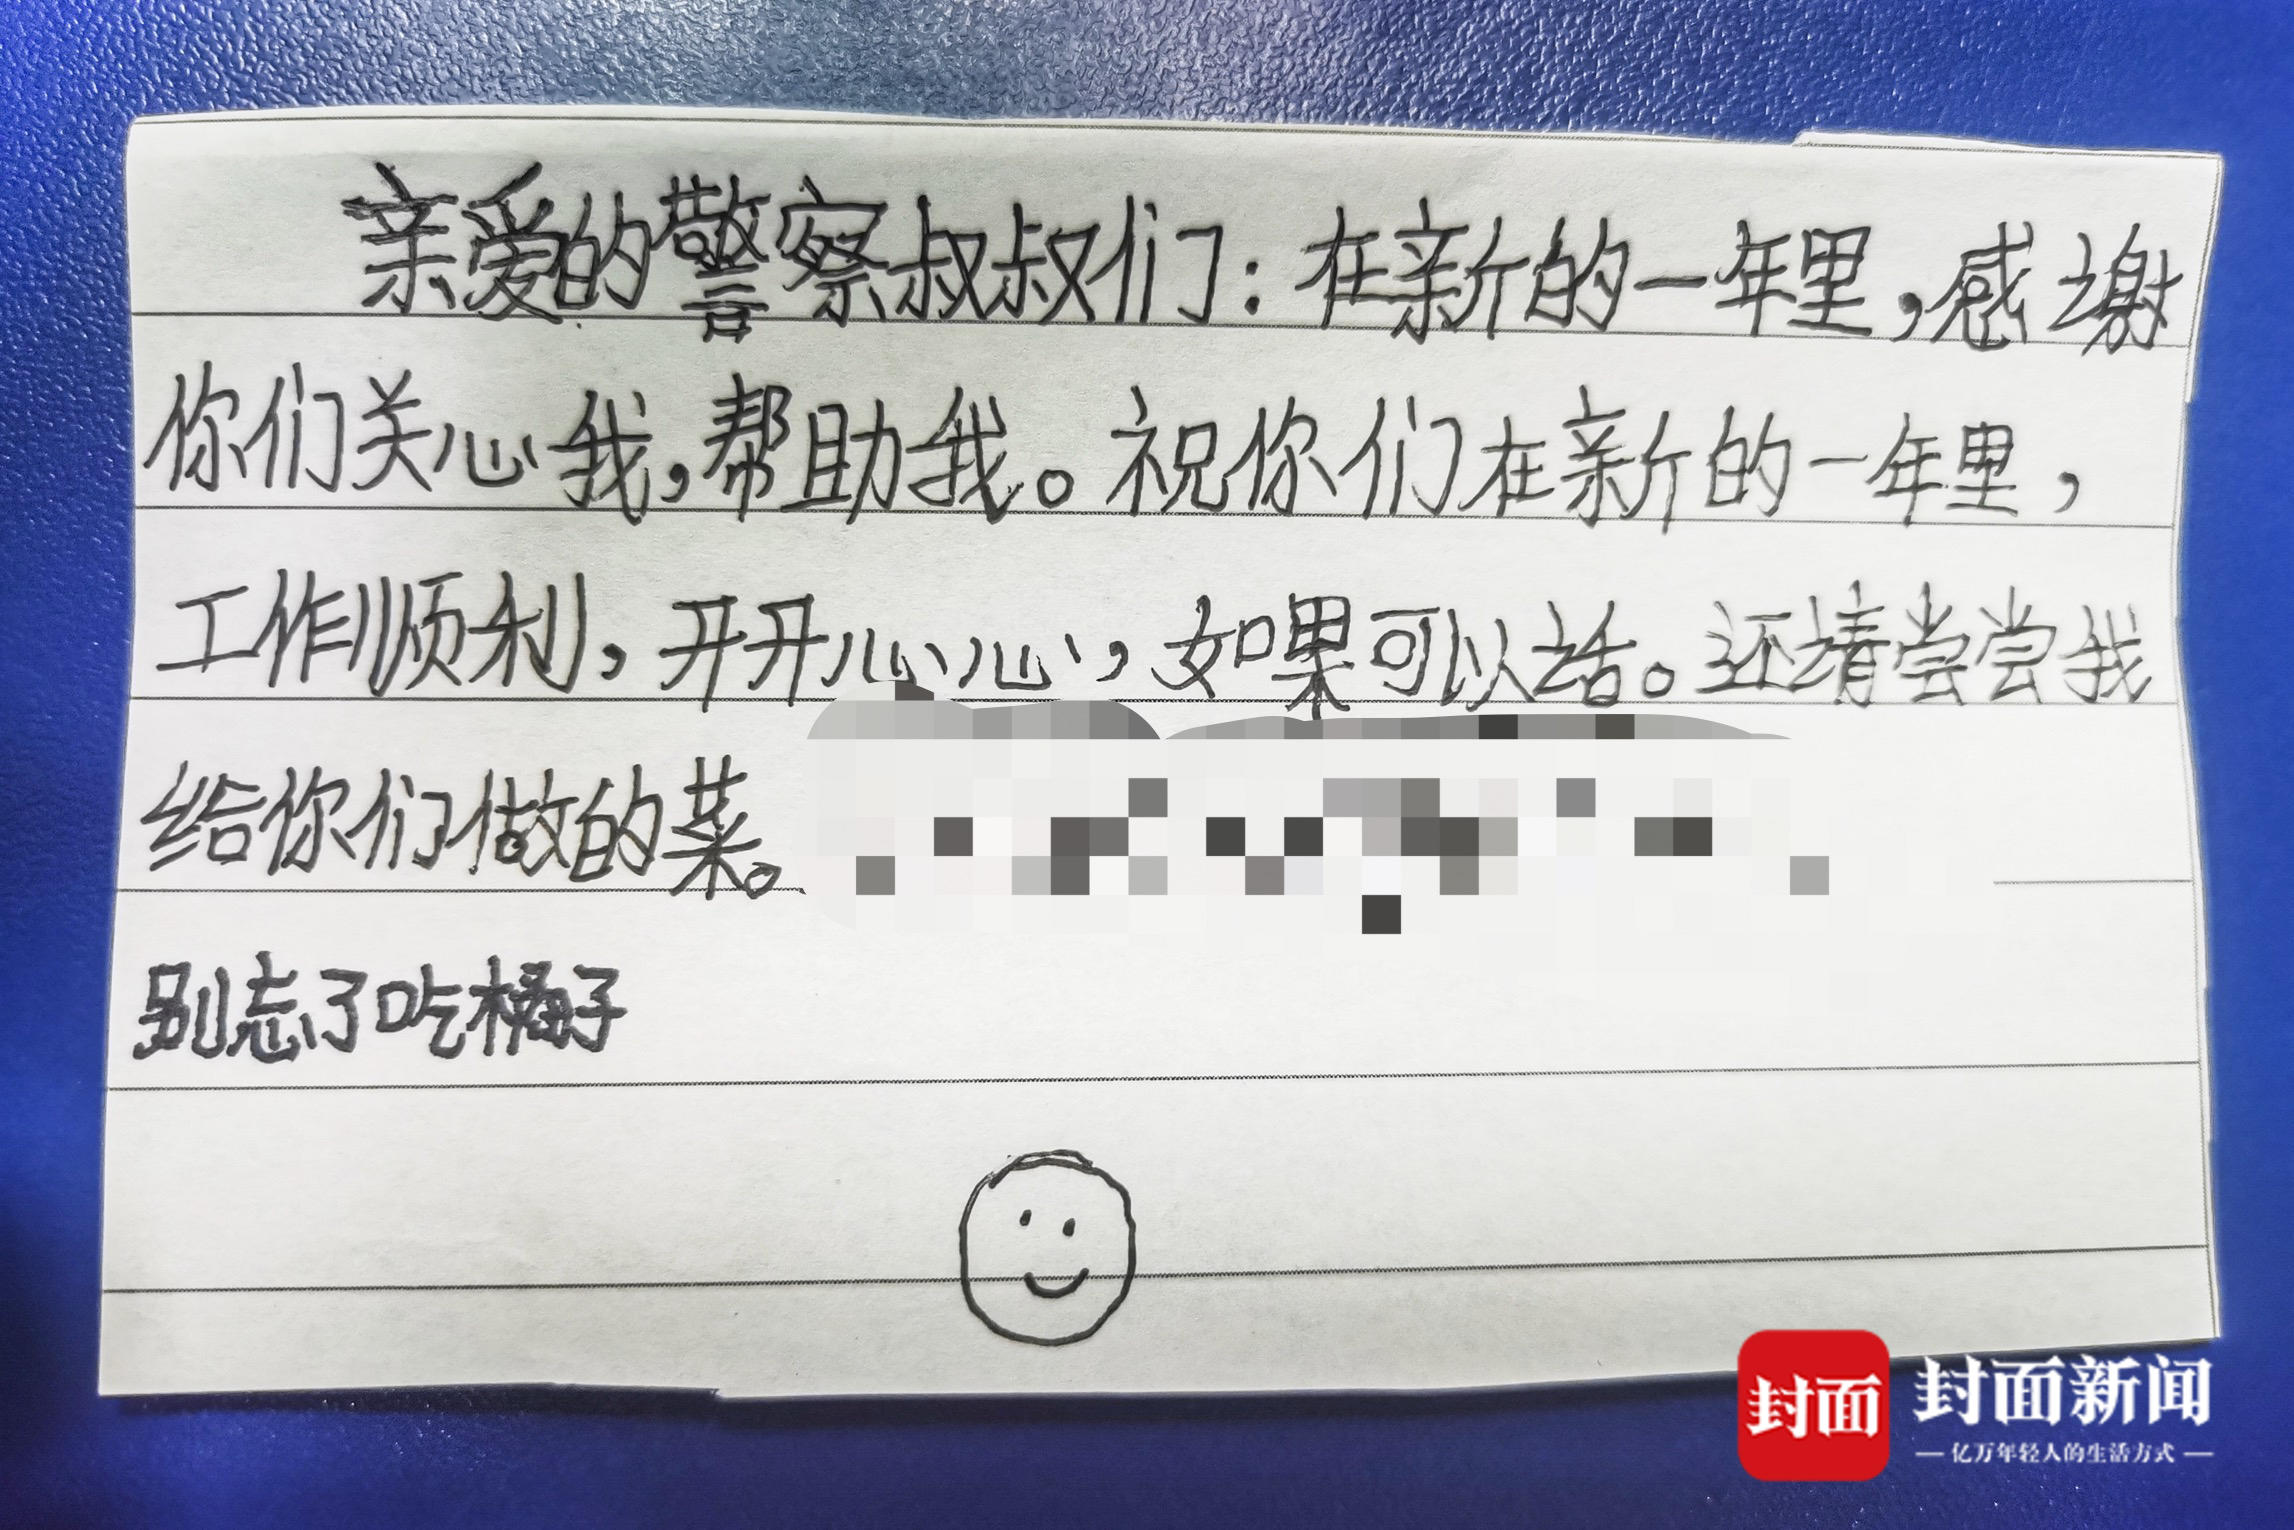 亲爱的警察叔叔们：在新的一年里，感谢
你们关心我，帮助我。祝你们在新的一年里，
工作顺利，开开心心，如果可以话。还请尝尝我
给你们做的菜。
别忘了吃橘子
封面
封面新闻
亿万年轻人的生活方式